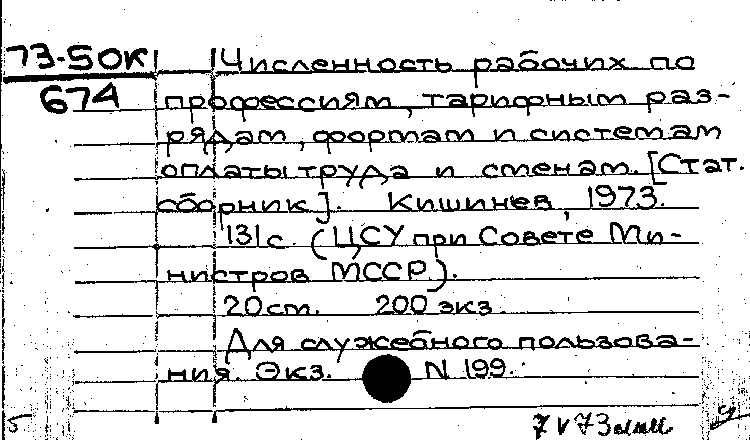 73-50К Численность рабочих по
674 профессиям, тарифным раз-
рядам, формам и системам
оплаты труда и сменам. [Стат.
сборник]. Кишинев, 1973.
131с. (ЦСУ при Совете Ми-
нистров МССР).
20см. 200 экз.
Для служебного пользова-
ния. Экз. N 199.
5
7 V 73